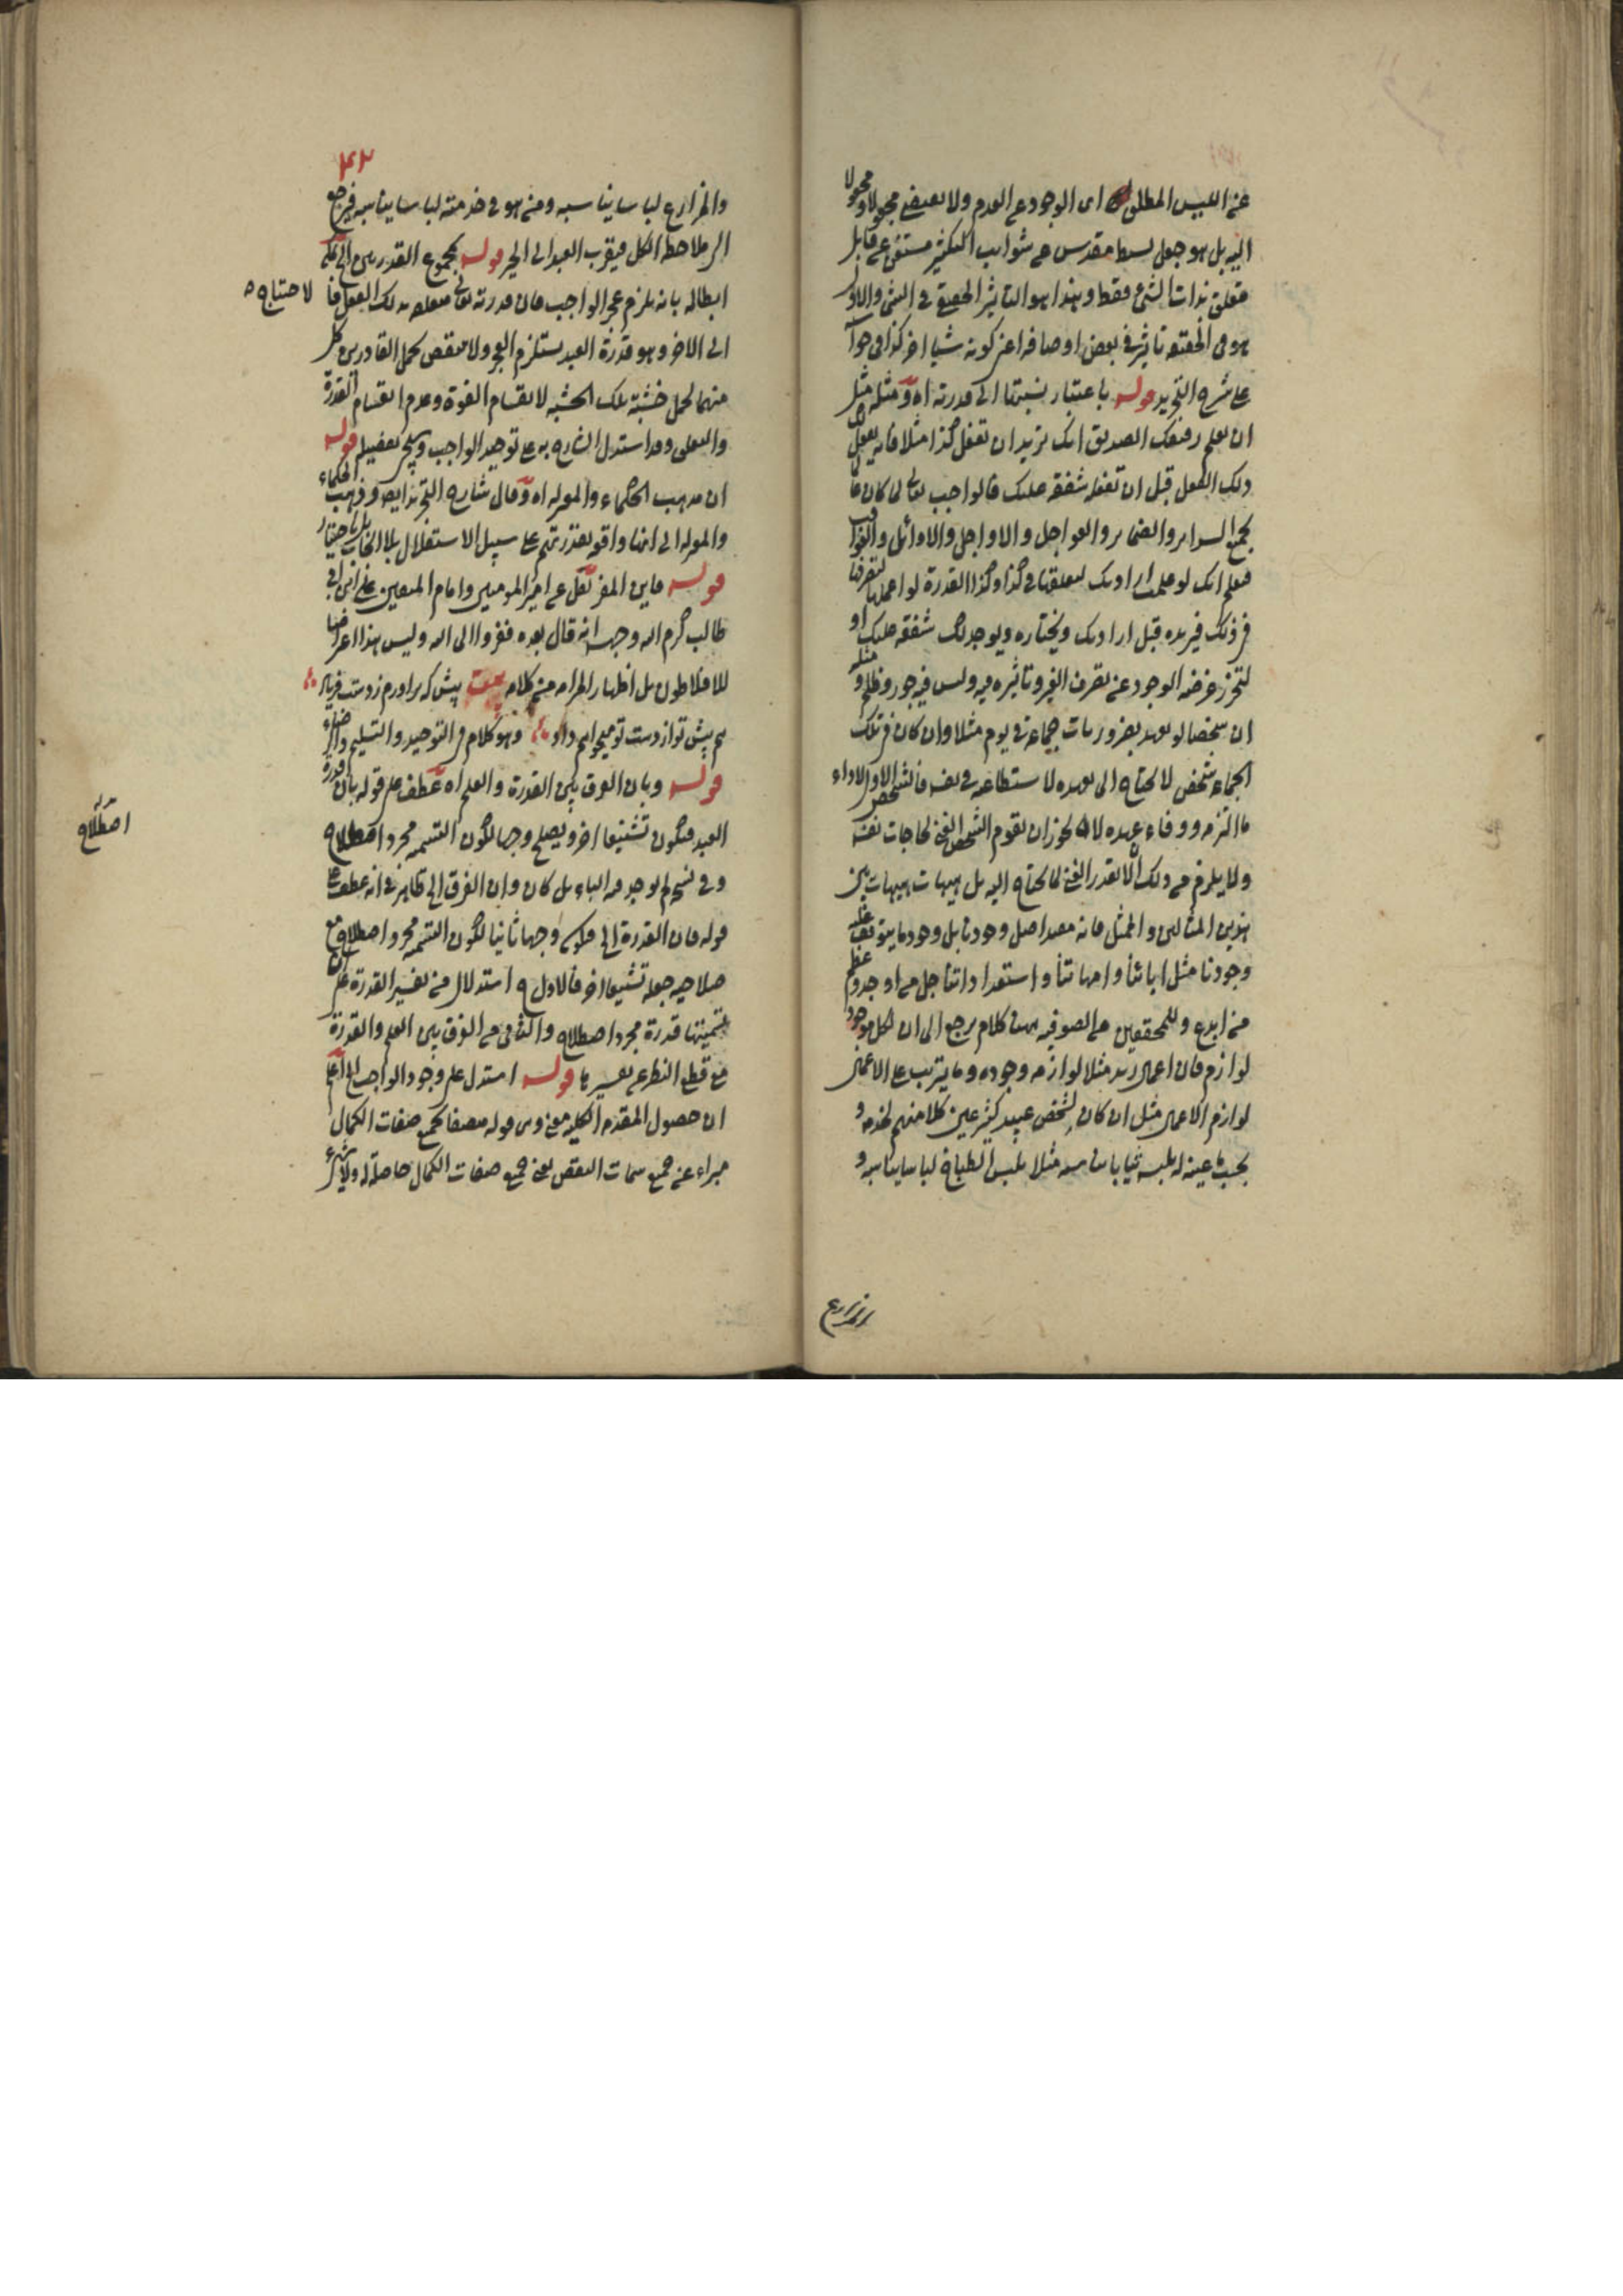 عن الليس المطلق اى الوجود عن العدم ولا يقتضى مجعولا ومجعولا
اليه بل هو جعل بسيط مقدس عن شوائب التكثير مستغن عن قابل
متعلق بذات الشئ فقط وهذا هو التاثير الحقيقى فى الشئ والاول
هو فى الحقيقة تاثير فى بعض اوصافه اعنى كونه شيئا اخر كذا فى حواشى
على شرح التجريد قوله باعتبار نسبتها الى قدرته اه ومثله مثل
ان يعلم رفيقك الصديق انك تريد ان تفعل كذا مثلا فانه يفعل
ذلك الفعل قبل ان تفعله شفقة عليك فالواجب تعالى لما كان عالما
بجميع السرائر والضمائر والعواجل والاواجل والاوائل والعواقب
فعلم انك لو علمت ارادتك لتعلقها فى كذا وكذا القدرة لو اعملها لتصرفها
فى ذلك فيريده قبل ارادتك ويختاره ويوجد لك شفقة عليك او
لتحرز عرضة الوجود عن تصرف الغير وتاثيره فيه وليس فيه جور وظلم ومثله
ان شخصا لو تعهد بضروريات جماعة فى يوم مثلا وان كان فى تلك
الجماعة شخص لا يحتاج الى تعهده لاستطاعته فى نفسه فالشخص الاول لاداء
ما التزمه ووفاء عهده لا يجوز ان يقوم الشخص الغنى لحاجات نفسه
ولا يلزم من ذلك ان لا يقدر الغنى لما يحتاج اليه بل هيهات هيهات بين
هذين المثالين والممثل فانه معد اصل وجودنا بل وجود ما يتوقف عليه
وجودنا مثل ابائنا وامهاتنا واستعداداتنا جل من اوجد وعظم
من ابدع وللمحققين من الصوفية هنا كلام يرجع الى ان لكل موجود
لوازم فان اعمال زيد مثلا لوازم وجوده وما يترتب على الاعمال
لوازم الاعمال مثل ان كان لشخص عبيد كثير عين كلا منهم لخدمة و
بحسب ما عينه له يلبسه ثيابا تناسبه مثلا يلبس الطباخ لباسا يناسبه و
والمزارع
٤٢
والمزارع لباسا يناسبه ومن هو فى خدمته لباسا يناسبه فيرجع
الى ملاحظة الكل فيقرب العبد الى الجبر قوله بمجموع القدرتين الخ يمكن
ابطاله بانه يلزم عجز الواجب فان قدرته تعالى متعلقة بذلك الفعل فالاحتياج
الى الاخر وهو قدرة العبد يستلزم العجز ولا ينقض بحمل القادرين كل
منهما لحمل خشبة تلك الخشبة لانقسام القوة وعدم انقسام القدرة
والتعلق وقد استدل الشارح به على توحيد الواجب وسيجئ تفصيله قوله
ان مذهب الحكماء والمعتزلة اه وقال شارح التجريد ايضا وذهب الحكماء
والمعتزلة الى انها واقعة بقدرتهم على سبيل الاستقلال بلا ايجاب بل باختيار
قوله فاين المفر نقل عن امير المومنين وامام المتقين على ابن ابى
طالب كرم الله وجهه انه قال بعده ففروا الى الله وليس هذا اعراضا
للافلاطون بل اظهار المرام من كلامه بيت پيش كه براورم زدستت فرياد
هم پيش تو از دست تو ميخواهم داد وهو كلام فى التوحيد والتسليم والرضاء
قوله وبان الفرق بين القدرة والعلم اه عطف على قوله بان قدرة
العبد فيكون تشنيعا اخر ويصلح وجها لكون التسمية مجرد اصطلاح
وفى نسخة لم يوجد فيه الباء بل كان وان الفرق الخ ظاهر فى انه عطف على
قوله فان القدرة الخ فيكون وجها ثانيا لكون التسمية مجرد اصطلاح مع
صلاحية جعله تشنيعا اخر فالاول استدلال من تفسير القدرة على ان
تسميتها قدرة مجرد اصطلاح والثانى من الفرق بين العلم والقدرة
مع قطع النظر عن تفسيرها قوله استدل على وجود الواجب الخ اعلم
ان حصول المقدمة الكلية معنى وهى قوله متصفا بجميع صفات الكمال
مبراء عن جميع سمات النقص يعنى جميع صفات الكمال حاصلة له ولا شئ
اصطلاح